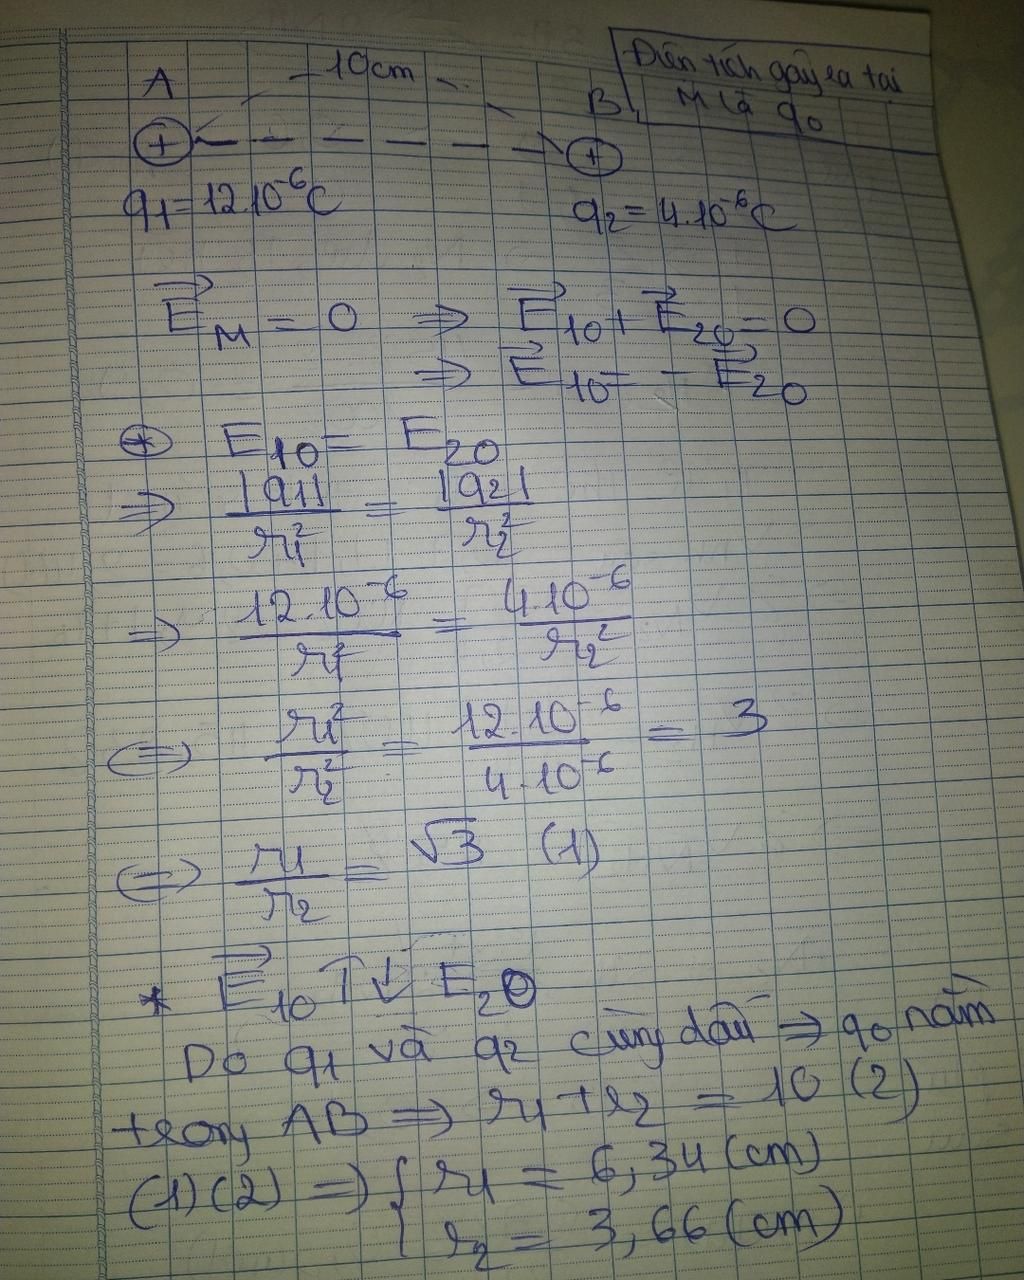 A 10cm B
Điện tích gây ra tại
M là q₀
+ +
q₁ = 12.10⁻⁶C q₂ = 4.10⁻⁶C
E⃗_M = 0 ⇒ E⃗₁₀ + E⃗₂₀ = 0
⇒ E⃗₁₀ = - E⃗₂₀
* E₁₀ = E₂₀
⇒ |q₁|/r₁² = |q₂|/r₂²
⇒ 12.10⁻⁶/r₁² = 4.10⁻⁶/r₂²
⇔ r₁²/r₂² = 12.10⁻⁶/4.10⁻⁶ = 3
⇔ r₁/r₂ = √3 (1)
* E⃗₁₀ ↑↓ E₂₀
Do q₁ và q₂ cùng dấu ⇒ q₀ nằm
trong AB ⇒ r₁ + r₂ = 10 (2)
(1)(2) ⇒ { r₁ = 6,34 (cm)
r₂ = 3,66 (cm)